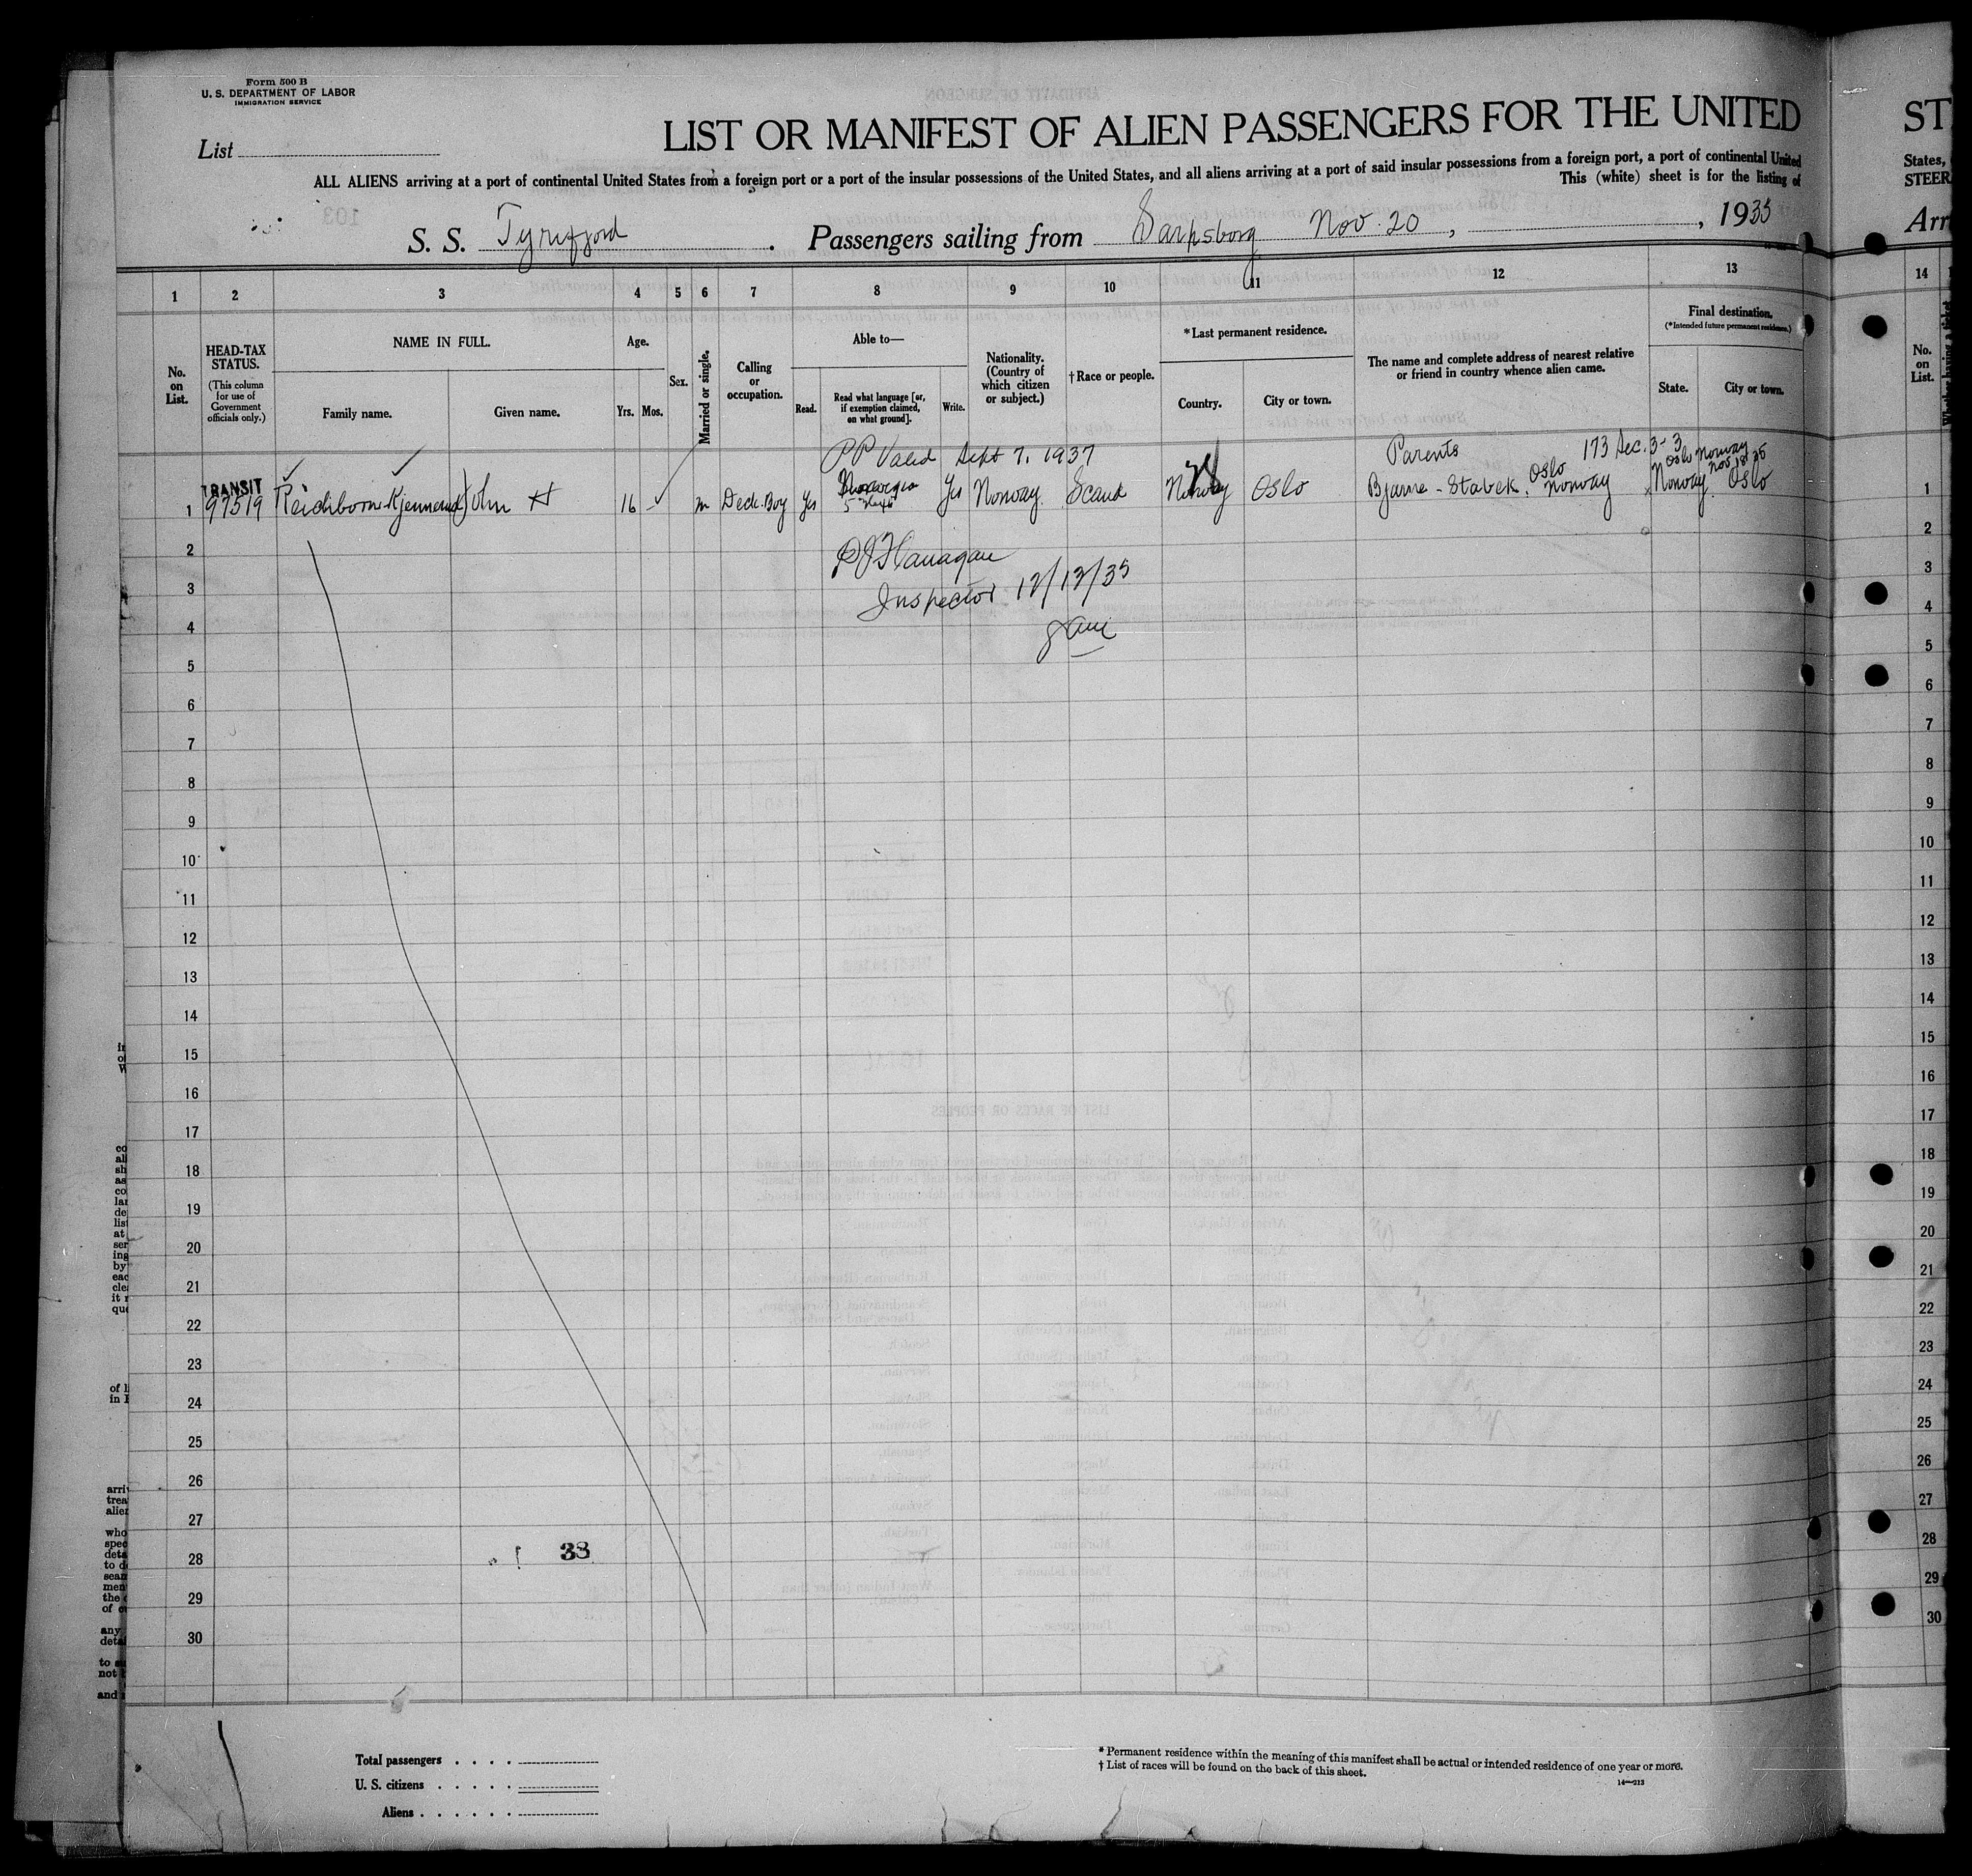 Form 500 B
U. S. DEPARTMENT OF LABOR
IMMIGRATION SERVICE
List
LIST OR MANIFEST OF ALIEN PASSENGERS FOR THE UNITED
ST
ALL ALIENS arriving at a port of continental United States from a foreign port or a port of the insular possessions of the United States, and all aliens arriving at a port of said insular possessions from a foreign port, a port of continental United
States,
This (white) sheet is for the listing of
STEER
S. S. Tyrifjord . Passengers sailing from Sarpsborg Nov. 20 , , 1935
Arr
1 2 3 4 5 6 7 8 9 10 11 12 13
14
No. on List.
HEAD-TAX STATUS.
(This column for use of Government officials only.)
NAME IN FULL.
Family name. Given name.
Age.
Yrs. Mos.
Sex.
Married or single.
Calling or occupation.
Able to—
Read. Read what language [or, if exemption claimed, on what ground]. Write.
Nationality. (Country of which citizen or subject.)
†Race or people.
*Last permanent residence.
Country. City or town.
The name and complete address of nearest relative or friend in country whence alien came.
Final destination.
(*Intended future permanent residence.)
State. City or town.
No. on List.
PP Valid Sept 7, 1937
Parents 173 Sec. 3-3
Oslo Norway
Nov 18 35
TRANSIT
1 97519 John H 16 m Deck Boy Yes Yes Norway Scand Norway Oslo Bjarne - Stabek. Oslo Norway Norway. Oslo 1
2 2
PJ Flanagan
3 3
Inspector 12/12/35
4 4
5 5
6 6
7 7
8 8
9 9
10 10
11 11
12 12
13 13
14 14
15 15
16 16
17 17
18 18
19 19
20 20
21 21
22 22
23 23
24 24
25 25
26 26
27 27
28 38 28
29 29
30 30
Total passengers . . . .
U. S. citizens . . . . .
Aliens . . . . . .
* Permanent residence within the meaning of this manifest shall be actual or intended residence of one year or more.
† List of races will be found on the back of this sheet.
14—213